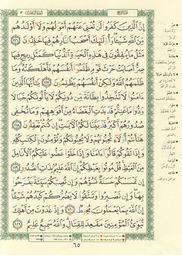 إِنَّ الَّذِينَ كَفَرُوا لَن تُغْنِيَ عَنْهُمْ أَمْوَالُهُمْ وَلَا أَوْلَادُهُم
مِّنَ اللَّهِ شَيْئًا وَأُولَٰئِكَ أَصْحَابُ النَّارِ هُمْ فِيهَا خَالِدُونَ ١١٦
مَثَلُ مَا يُنفِقُونَ فِي هَٰذِهِ الْحَيَاةِ الدُّنْيَا كَمَثَلِ رِيحٍ فِيهَا
صِرٌّ أَصَابَتْ حَرْثَ قَوْمٍ ظَلَمُوا أَنفُسَهُمْ فَأَهْلَكَتْهُ وَمَا
ظَلَمَهُمُ اللَّهُ وَلَٰكِنْ أَنفُسَهُمْ يَظْلِمُونَ ١١٧ يَا أَيُّهَا الَّذِينَ
آمَنُوا لَا تَتَّخِذُوا بِطَانَةً مِّن دُونِكُمْ لَا يَأْلُونَكُمْ خَبَالًا
وَدُّوا مَا عَنِتُّمْ قَدْ بَدَتِ الْبَغْضَاءُ مِنْ أَفْوَاهِهِمْ وَمَا تُخْفِي
صُدُورُهُمْ أَكْبَرُ قَدْ بَيَّنَّا لَكُمُ الْآيَاتِ إِن كُنتُمْ تَعْقِلُونَ ١١٨
هَا أَنتُمْ أُولَاءِ تُحِبُّونَهُمْ وَلَا يُحِبُّونَكُمْ وَتُؤْمِنُونَ بِالْكِتَابِ كُلِّهِ
وَإِذَا لَقُوكُمْ قَالُوا آمَنَّا وَإِذَا خَلَوْا عَضُّوا عَلَيْكُمُ الْأَنَامِلَ
مِنَ الْغَيْظِ قُلْ مُوتُوا بِغَيْظِكُمْ إِنَّ اللَّهَ عَلِيمٌ بِذَاتِ الصُّدُورِ ١١٩
إِن تَمْسَسْكُمْ حَسَنَةٌ تَسُؤْهُمْ وَإِن تُصِبْكُمْ سَيِّئَةٌ يَفْرَحُوا
بِهَا وَإِن تَصْبِرُوا وَتَتَّقُوا لَا يَضُرُّكُمْ كَيْدُهُمْ شَيْئًا إِنَّ
اللَّهَ بِمَا يَعْمَلُونَ مُحِيطٌ ١٢٠ وَإِذْ غَدَوْتَ مِنْ أَهْلِكَ
تُبَوِّئُ الْمُؤْمِنِينَ مَقَاعِدَ لِلْقِتَالِ وَاللَّهُ سَمِيعٌ عَلِيمٌ ١٢١
٦٥